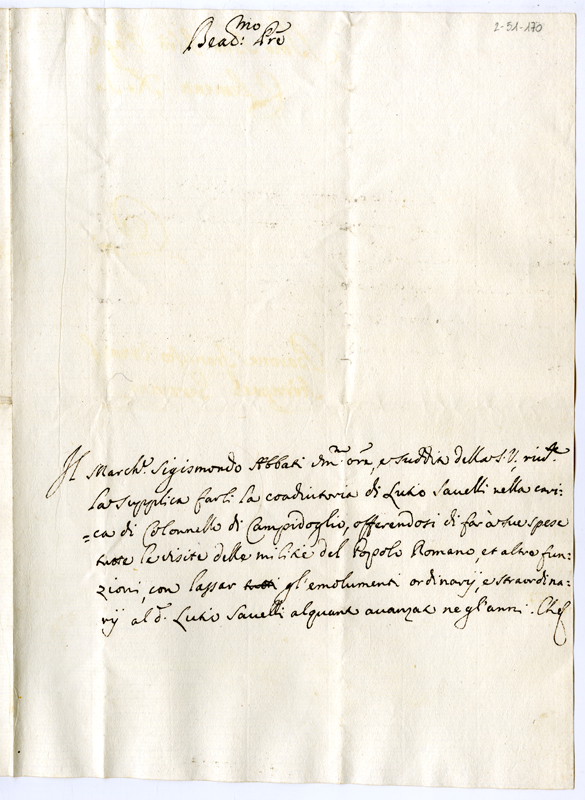 2-51-170
Bead:mo Pre
Il March.e Sigismondo Abbati Om.e ora, e suddita della S.V, riu.te
la supplica farli la coadiutoria di Lutio Sauelli nella cari:
=ca di Colonnello di Campidoglio, offerendosi di far à sue spese
tutte le visite delle militie del Popolo Romano, et altre fun:
zioni, con lassar tutti gl'emolumenti ordinarij, e straordina:
rij al d.o Lutio Sauelli alquant auanzat negl'anni. Che